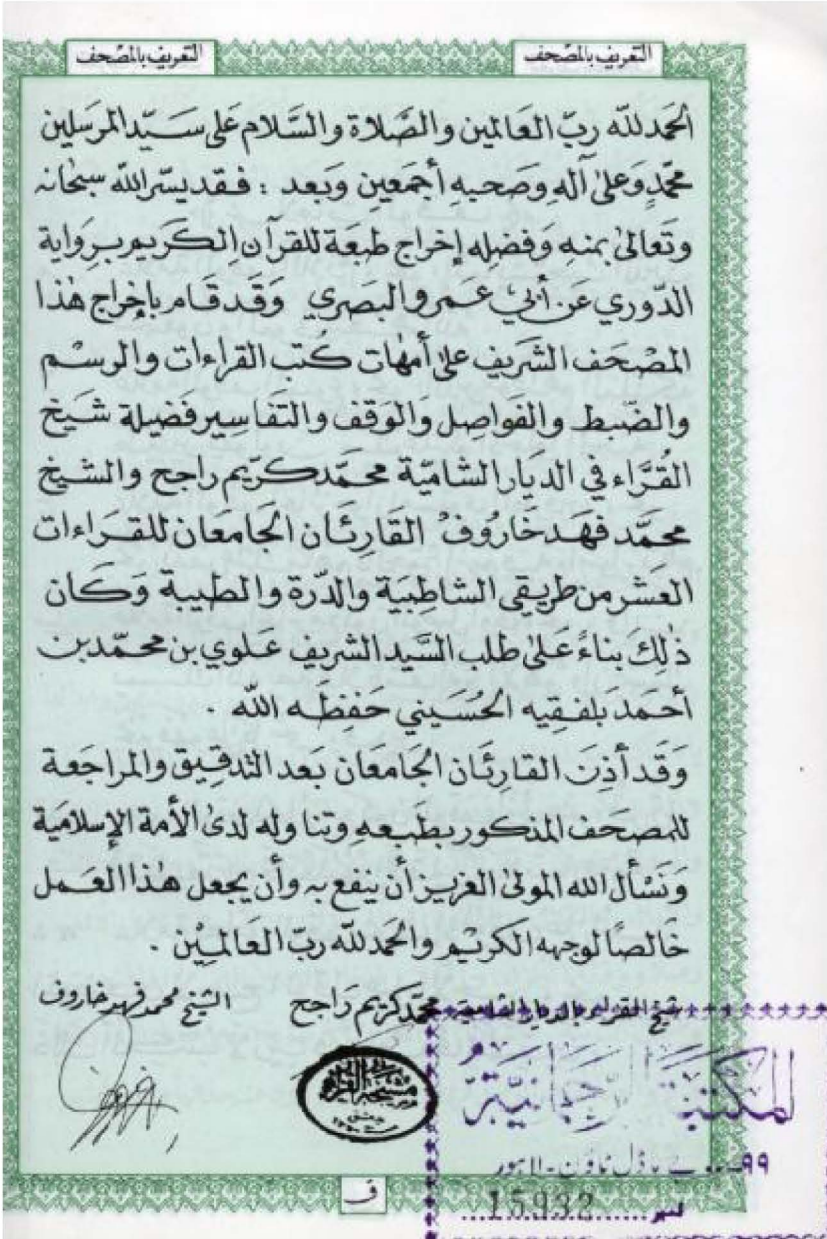 التعريف بالمصحف
التعريف بالمصحف
الحمد لله ربّ العَالمين والصَّلاة والسَّلام عَلى سَيّد المرسَلين
محمّدٍ وَعلىٰ آلهِ وصَحبهِ أجمَعين وَبعد : فقد يسّر الله سبحانه
وتَعالىٰ بمنهِ وَفضلِه إخراج طبعَة للقرآن الكَريم برِوَاية
الدّوري عَن أبي عَمرو البصَري وَقد قَام بإخراج هٰذا
المصْحَف الشَريف علىٰ أمهَات كُتب القراءات والرسْم
والضّبط والفَواصِل وَالوَقف والتفَاسِير فضيلة شَيخ
القُرَّاء في الديَار الشَاميّة محَمّد كريّم راجح والشيخ
محمَّد فهَد خَاروفْ القَارِئَان الجَامعَان للقراءات
العَشر من طريقي الشاطِبيَة والدّرة والطيبة وَكَان
ذٰلِكَ بناءً عَلىٰ طلب السَّيد الشريف عَلوي بن محَمّد بن
أحمَد بَلفقيه الحُسَيني حَفِظَه الله .
وَقَد أذِنَ القَارِئَان الجَامعَان بَعد التدقيق والمراجَعة
للمصحَف المذكور بطبعهِ وتناوله لدىٰ الأمة الإسلاميَة
وَنَسْأل الله المولىٰ العَزيز أن ينفع به وأن يجعل هٰذا العَمل
خَالصًا لوجهه الكَريْم والحمد لله ربّ العَالميْن .
شيخ القراء بالديار الشامية محمّد كريّم رَاجح
الشيخ محمد فهد خاروف
مشيخة القراء
دمشق
المكتبة الرحمانية
٩٩ ... جے ماڈل ٹاؤن - لاہور
نمبر ...... 15932 ......
ف